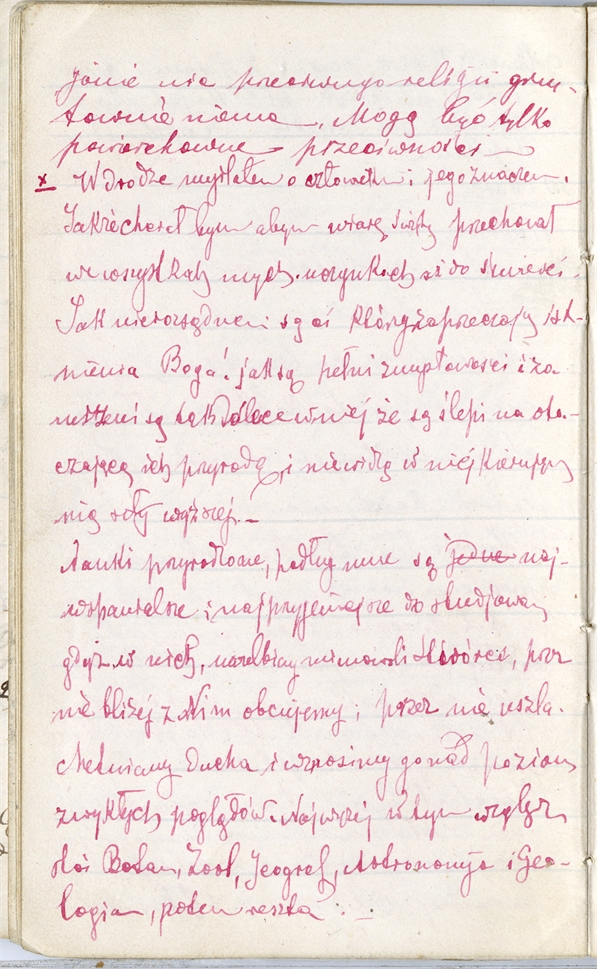 jonie nie przeciwnego religii grun-
townie niema, Mogą być tylko
powierzchowne przeciwności
x W drodze myślałem o człowieku i jego znaczen.
Jakże chciał bym abym wiarę świętą przechował
we wszystkich mych uczynkach aż do śmierci.
Jak nierozsądnemi są ci którzy zaprzeczają ist-
nienia Boga! jak są pełni zmysłowości i za
nurzeni są tak dalece w niej że są ślepi na ota-
czającą ich przyrodę i nie widzą w niej kierującej
nią siły wyższej. –
Nauki przyrodzone, podług mnie są jedne naj-
wspanialsze i najprzyjemniejsze do studjowania
gdyż w nich, uwielbiamy mimowoli Stwórcę, przez
nie bliżej z Nim obcujemy i przez nie uszla-
chetniamy ducha i wznosimy go nad poziom
zwykłych poglądów. Najwyżej w tym względzie
stoi Botan, Zool, Jeograf, Astronomija i Geo-
logia, potem reszta . –